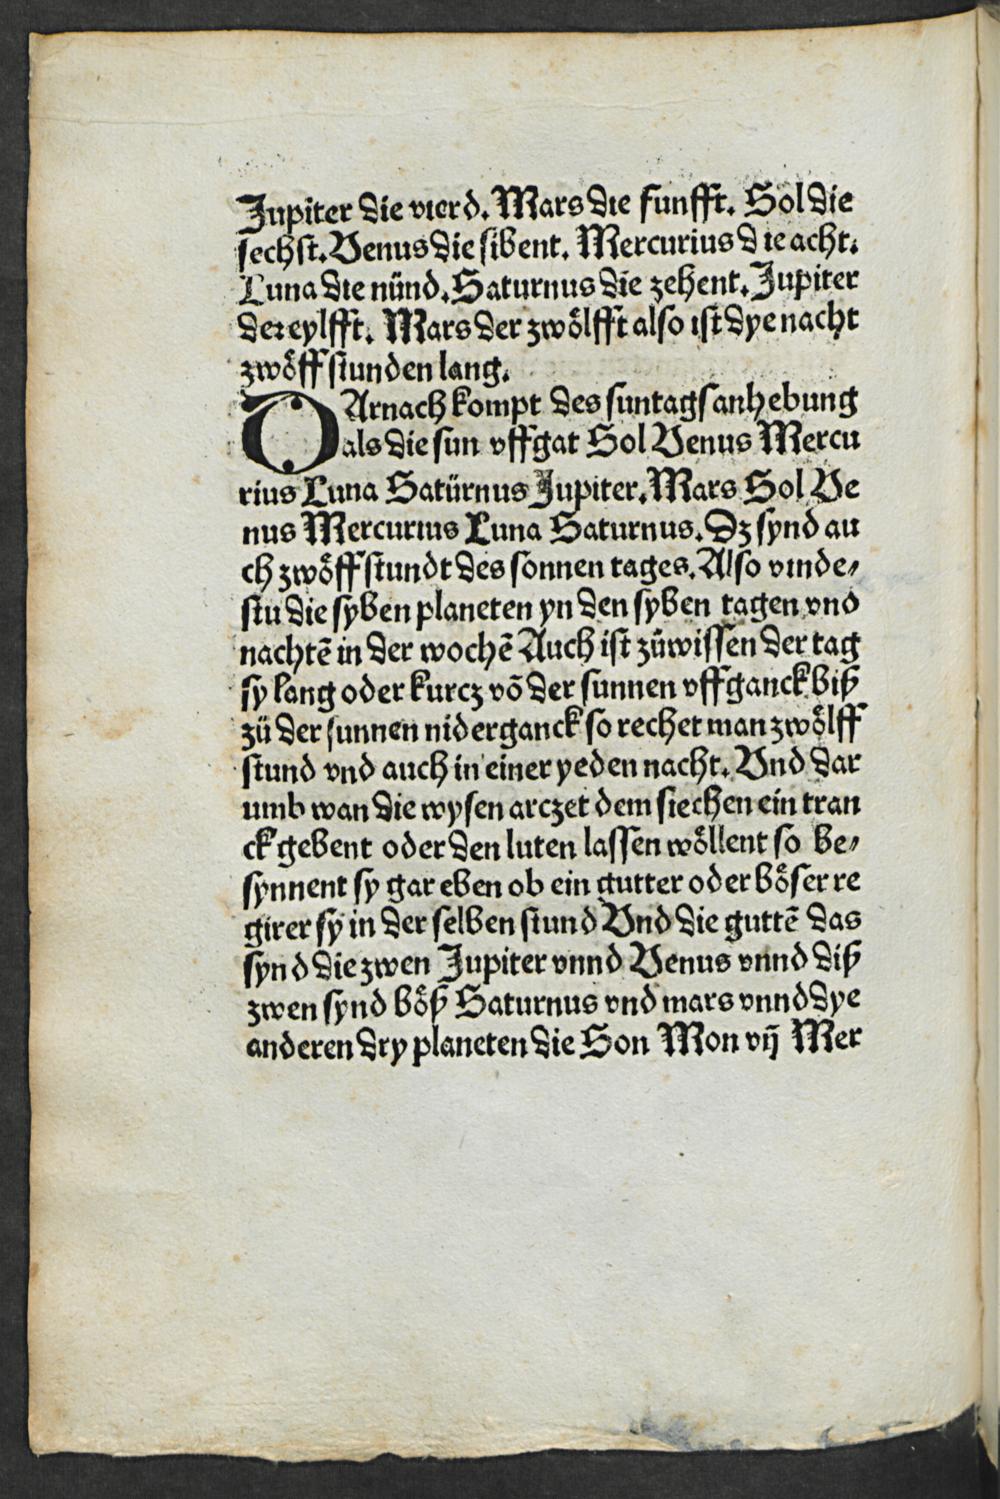 Jupiter die vierd. Mars die funfft. Sol die
sechst. Venus die sibent. Mercurius die acht.
Luna die nünd. Saturnus die zehent. Jupiter
der eylfft. Mars der zwölfft also ist dye nacht
zwöff stunden lang.
DArnach kompt des suntags anhebung
als die sun vffgat Sol Venus Mercu
rius Luna Satürnus Jupiter. Mars Sol Ve
nus Mercurius Luna Saturnus. Dz synd au
ch zwöff stundt des sonnen tages. Also vinde⸗
stu die syben planeten yn den syben tagen vnd
nachtē in der wochē Auch ist züwissen der tag
sy lang oder kurcz vō der sunnen vffganck biß
zü der sunnen niderganck so rechet man zwölff
stund vnd auch in einer yeden nacht. Vnd dar
umb wan die wysen arczet dem siechen ein tran
ck gebent oder den luten lassen wöllent so be⸗
synnent sy gar eben ob ein gutter oder böser re
girer sy in der selben stund Vnd die guttē das
synd die zwen Jupiter vnnd Venus vnnd diß
zwen synd böß Saturnus vnd mars vnnd dye
anderen dry planeten die Son Mon vij Mer